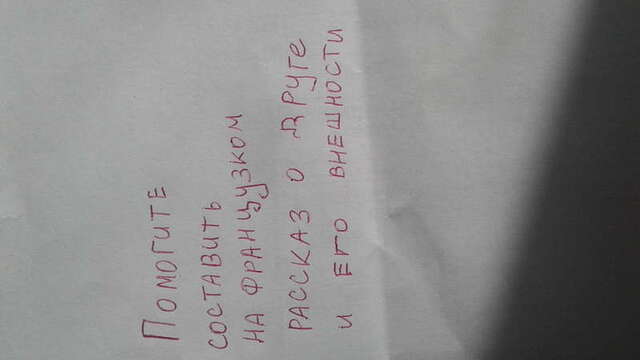 Помогите
составить
на французком
рассказ о друге
и его внешности